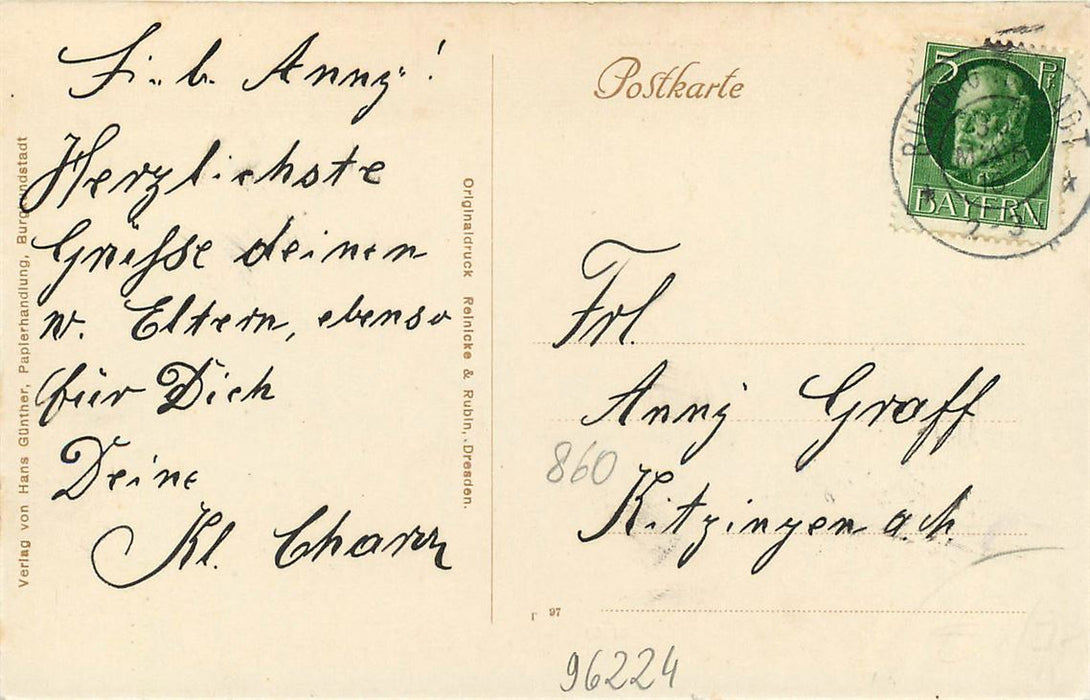 Verlag von Hans Günther, Papierhandlung, Burgkundstadt
Lieb. Anny!
Herzlichste
Grüsse deinen
w. Eltern, ebenso
für Dich
Deine
Kl.
Originaldruck Reinicke & Rubin, Dresden.
Postkarte
5 Pf
BAYERN
MAR
16
2-3
Frl.
Anny Graff
860
Kitzingen a. M.
97
96224